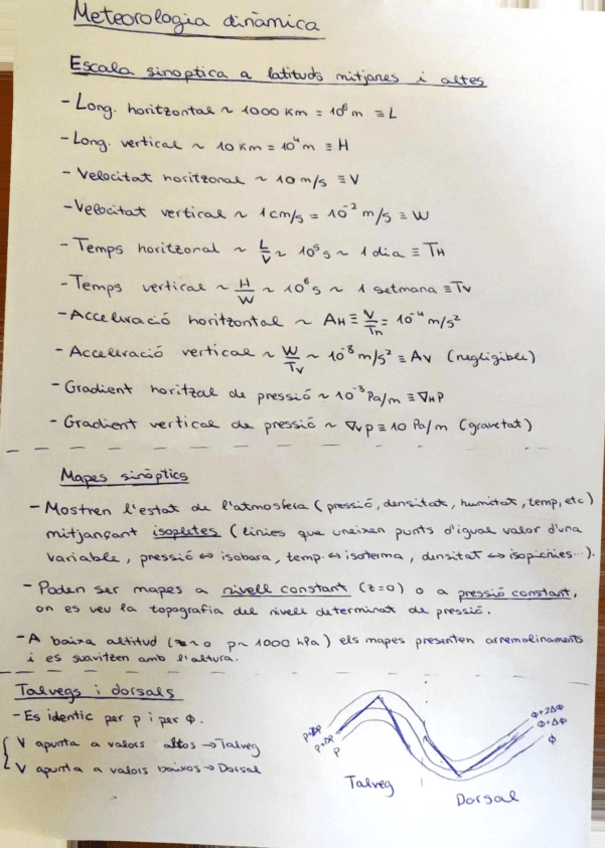 Meteorologia dinàmica
Escala sinoptica a latituds mitjanes i altes
- Long. horitzontal ~ 1000 Km = 10⁶ m ≡ L
- Long. vertical ~ 10 Km = 10⁴ m ≡ H
- Velocitat horitzonal ~ 10 m/s ≡ V
- Velocitat vertical ~ 1 cm/s = 10⁻² m/s ≡ W
- Temps horitzonal ~ L/V ~ 10⁵ s ~ 1 dia ≡ T_H
- Temps vertical ~ H/W ~ 10⁶ s ~ 1 setmana ≡ T_V
- Acceleració horitzontal ~ A_H ≡ V/T_H = 10⁻⁴ m/s²
- Acceleració vertical ~ W/T_V ~ 10⁻⁸ m/s² ≡ A_V (negligible)
- Gradient horitzal de pressió ~ 10⁻³ Pa/m ≡ ∇_H P
- Gradient vertical de pressió ~ ∇_V p ≡ 10 Pa/m (gravetat)
Mapes sinòptics
- Mostren l'estat de l'atmosfera (pressió, densitat, humitat, temp, etc)
mitjançant isopletes (línies que uneixen punts d'igual valor d'una
variable, pressió ⇔ isobara, temp. ⇔ isoterma, densitat ⇔ isopicnies...).
- Poden ser mapes a nivell constant (z=0) o a pressió constant,
on es veu la topografia del nivell determinat de pressió.
- A baixa altitud (z~0 p~1000 hPa) els mapes presenten arremolinaments
i es suavitzen amb l'altura.
Talvegs i dorsals
- Es identic per p i per ϕ.
V apunta a valors altos → Talveg
V apunta a valors baixos → Dorsal
p
Talveg
Dorsal
ϕ+2Δϕ
ϕ+Δϕ
ϕ